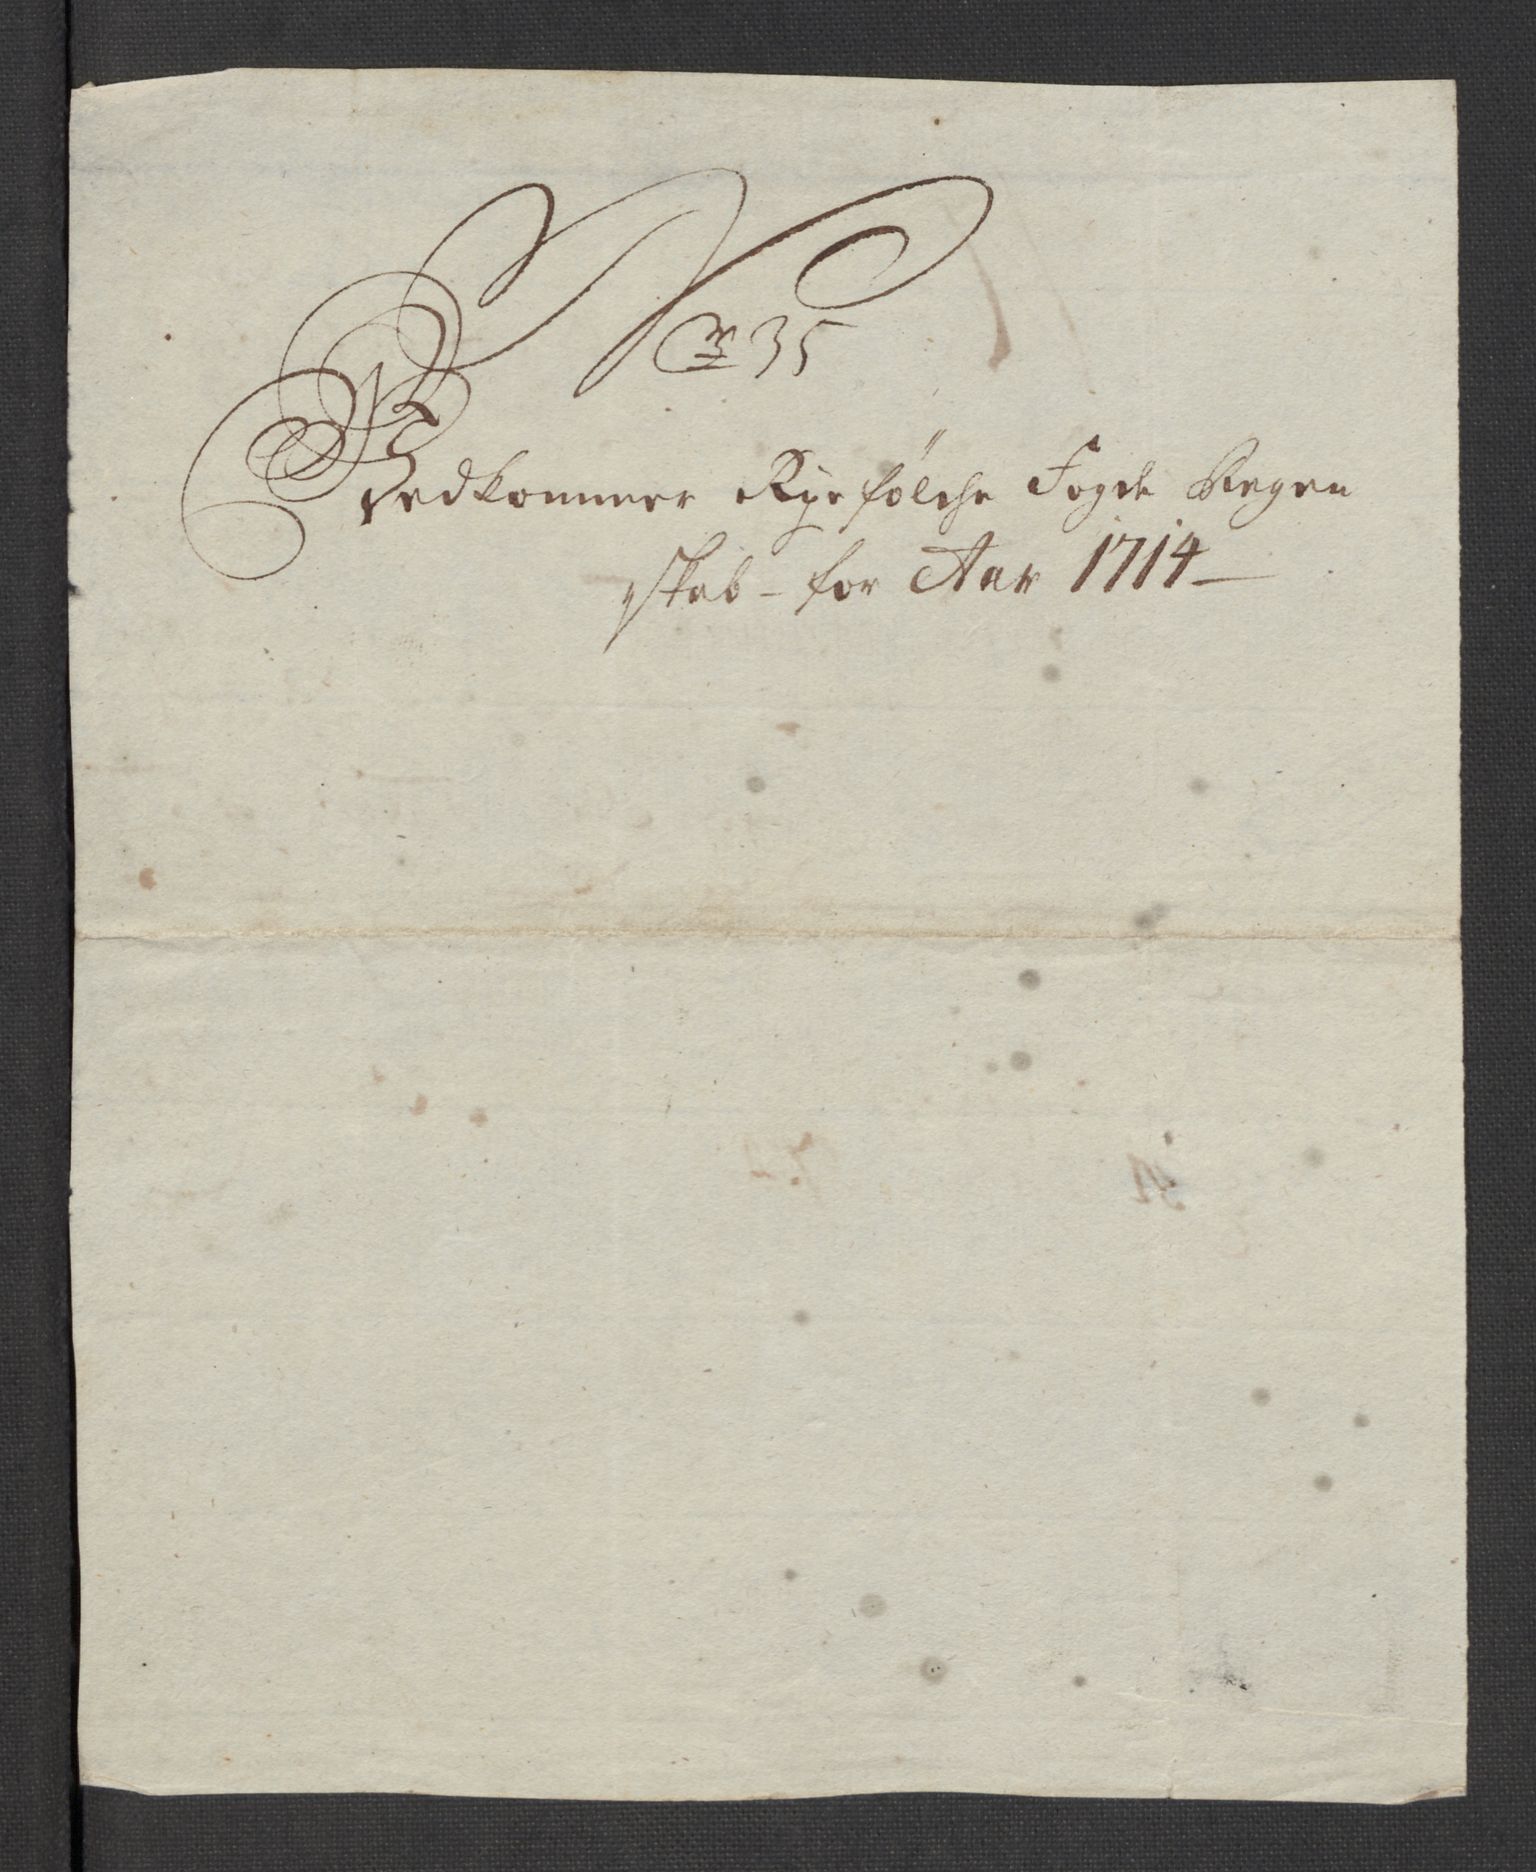 No 35
Vedkommer Ryefølche Fogde Regen
skab - for Aar 1714 -